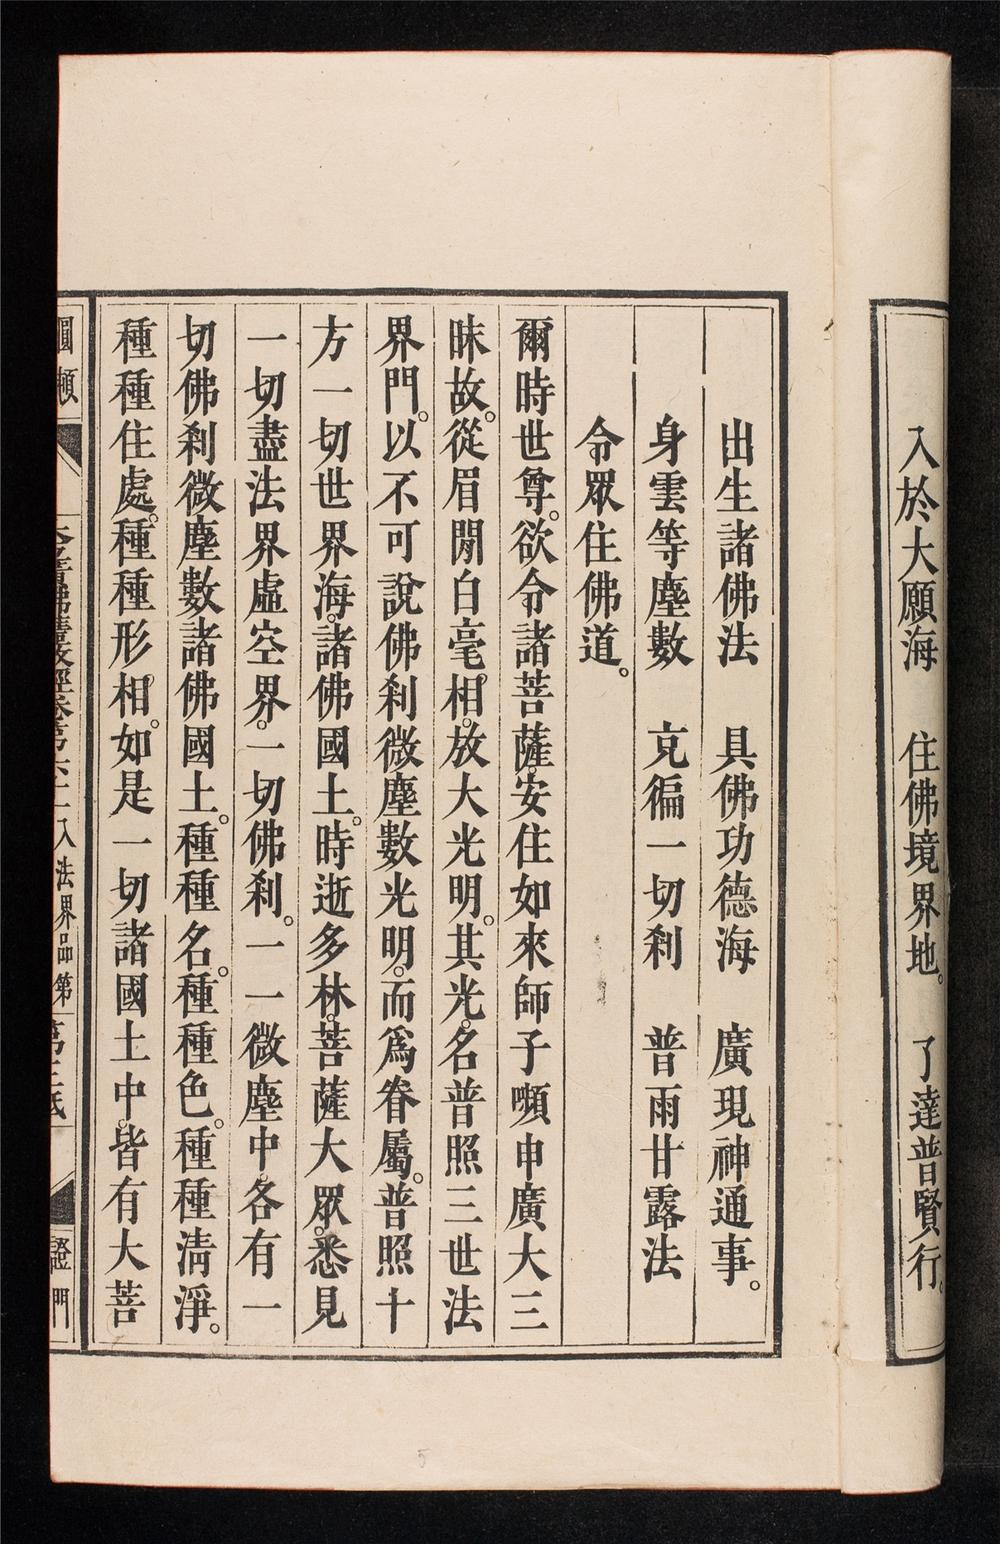 入於大願海　住佛境界地。　了達普賢行。
出生諸佛法　具佛功德海　廣現神通事。
身雲等塵數　充徧一切剎　普雨甘露法
令眾住佛道。
爾時世尊。欲令諸菩薩。安住如來師子嚬申廣大三
昧故。從眉閒白毫相。放大光明。其光。名普照三世法
界門。以不可說佛剎微塵數光明。而爲眷屬。普照十
方一切世界海。諸佛國土。時逝多林。菩薩大眾。悉見
一切盡法界虛空界。一切佛剎。一一微塵中各有一
切佛剎微塵數諸佛國土。種種名。種種色。種種淸淨。
種種住處。種種形相。如是一切諸國土中。皆有大菩
圓頓
經卷第六十一入法界品第
證門